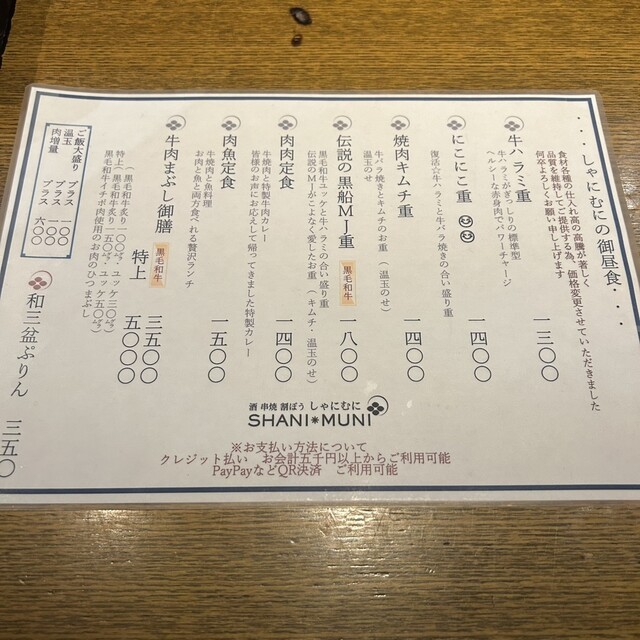 ・・・・しゃにむにの御昼食・・・・
食材各種の仕入れ高の高騰が著しく
品質を維持してご提供する為、価格変更させていただきました
何卒よろしくお願い申し上げます
牛ハラミ重 一三〇〇
牛ハラミがぎっしりの標準型
ヘルシーな赤身肉でパワーチャージ
にこにこ重 一四〇〇
復活☆牛ハラミと牛バラ焼きの合い盛り重
焼肉キムチ重 一四〇〇
牛バラ焼きとキムチのお重 (温玉のせ)
温玉のせ
伝説の黒船MJ重 黒毛和牛 一八〇〇
黒毛和牛ユッケと牛ハラミの合い盛り重
伝説のMJがこよなく愛したお重 (キムチ・温玉のせ)
肉肉定食 一四〇〇
牛焼肉と特製牛肉カレー
皆様のお声にお応えして帰ってきました特製カレー
肉魚定食 一五〇〇
牛焼肉と魚料理
お肉と魚と両方食べれる贅沢ランチ
牛肉まぶし御膳 黒毛和牛 三五〇〇
特上 五〇〇〇
(黒毛和牛炙り一〇〇㌘・ユッケ三〇㌘)
特上(黒毛和牛炙り一五〇㌘・ユッケ五〇㌘)
黒毛和牛イチボ肉使用のお肉のひつまぶし
ご飯大盛り プラス 一〇〇
温玉 プラス 一〇〇
肉増量 プラス 六〇〇
和三盆ぷりん 三五〇
酒 串焼 割ぽう しゃにむに
SHANI*MUNI
※お支払い方法について
クレジット払い お会計五千円以上からご利用可能
PayPayなどQR決済 ご利用可能